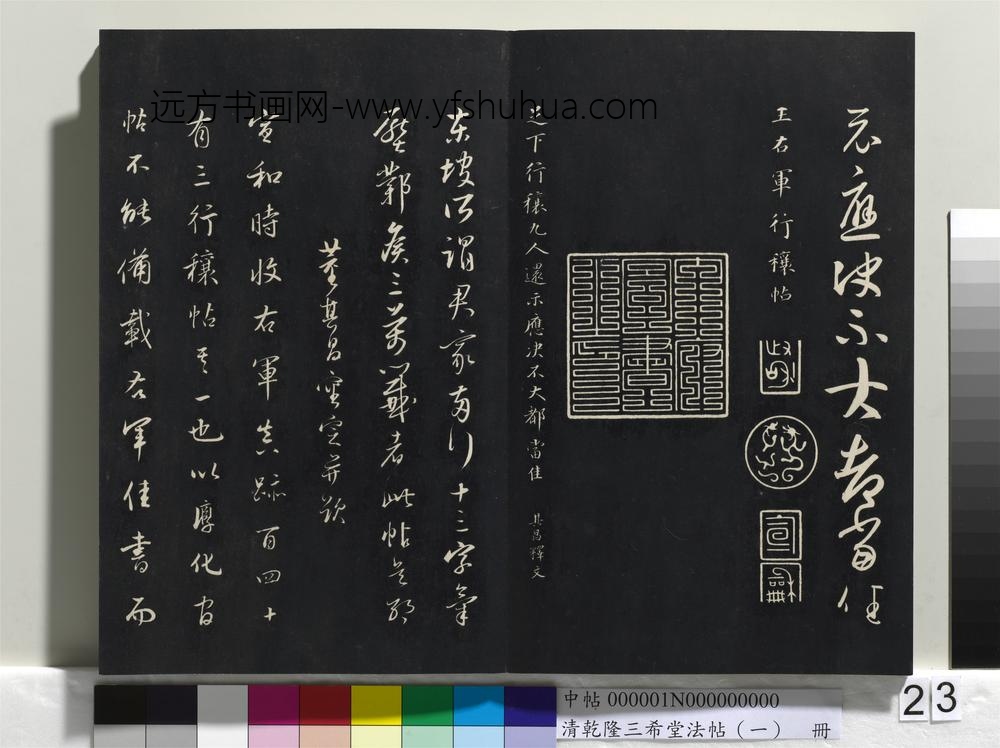 示應決不大都當佳
王右軍行穰帖
政和
宣和
足下行穰九人還示應決不大都當佳 其昌釋文
東坡所謂君家兩行十二字氣
壓鄴侯三萬籤者此帖是耶
董其昌審定并題
宣和時收右軍真跡百四十
有三行穰帖其一也以淳化官
帖不能備載右軍佳書而
远方书画网-www.yfshuhua.com
中帖 000001N000000000
清乾隆三希堂法帖（一） 冊
23